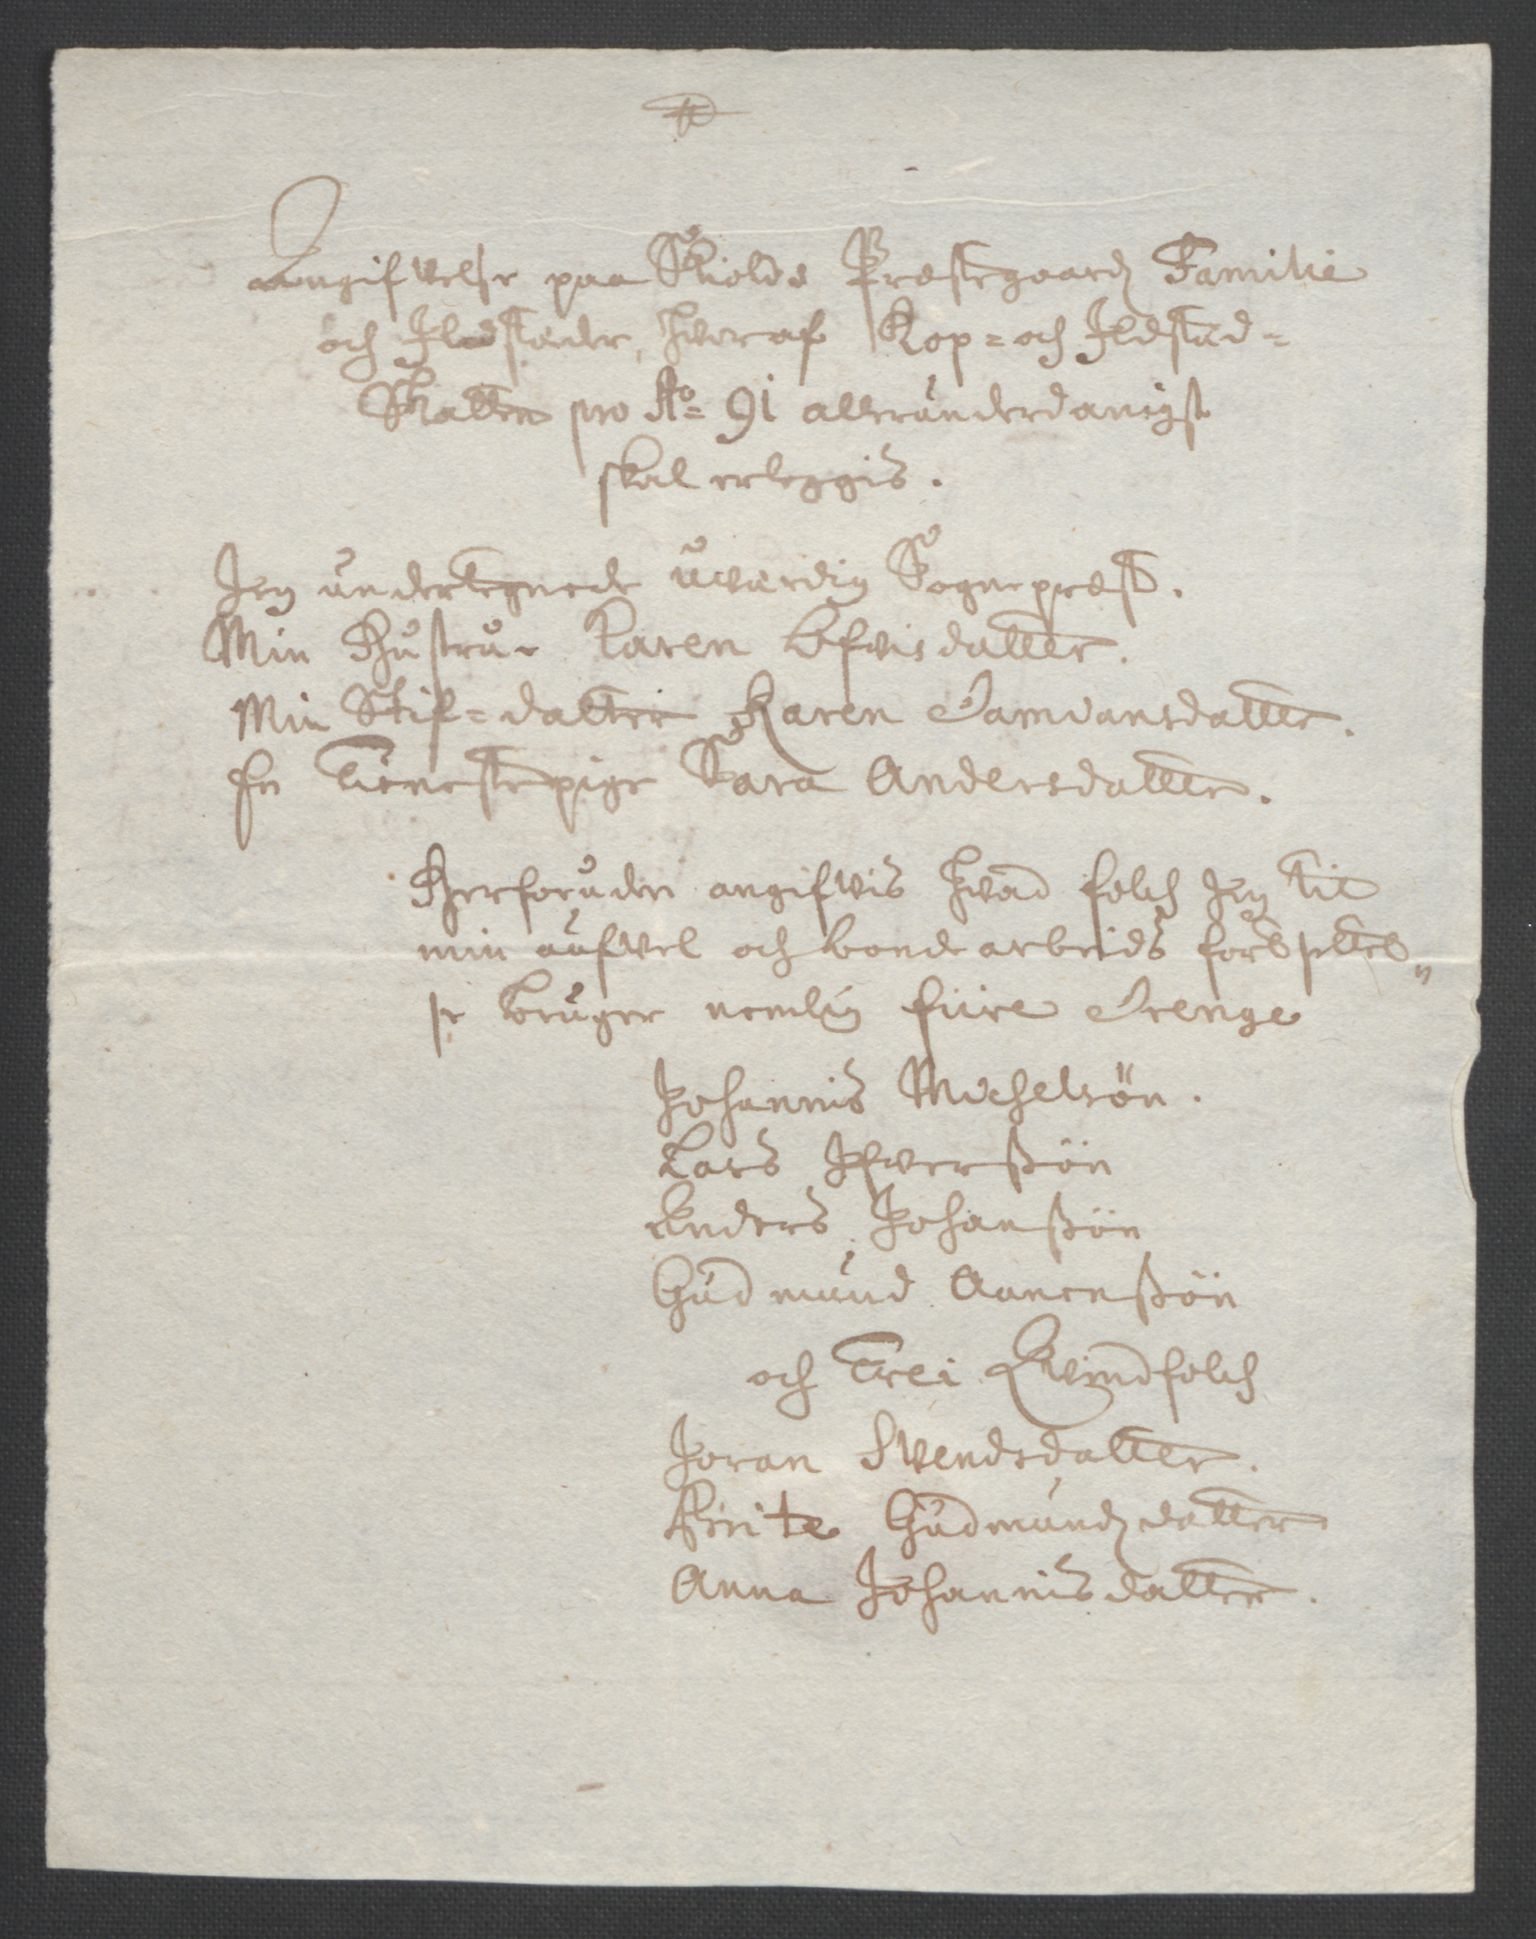 Angifwelse paa Skiolds Præstegaards Familie
och Ildstæder, hworaf Kop= och Ildstæd=
Skatten pro Ao= 91 allerunderdanigst
skal erleggis.
Jeg undertegnede uwærdig Sogneprest.
Min Hustrue Karen datter.
Min Stif=datter Karen
En Tienistepige Sara Andersdatter.
Herforuden angifwis hwad folch Jeg til
min aufwel och bonde arbeids fortsettel„
se bruger nemlig fiire Drenge
Johannis Michelsön.
Lars Ifwerßön
Anders Johanßön
Gudmund Aanenßön
och trei Qwindfolch
Joran Swendsdatter.
Brite Gudmundsdatter
Anna Johannisdatter.